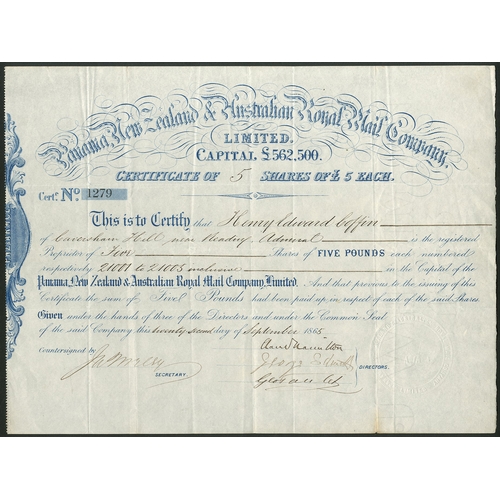 Panama, New Zealand & Australian Royal Mail Company,
LIMITED.
CAPITAL £562,500.
CERTIFICATE OF 5 SHARES OF £5 EACH.
Cert. No. 1279
This is to Certify that Henry Edward Coffin
of Caversham Hill near Reading Admiral is the registered
Proprietor of Five Shares of FIVE POUNDS each numbered
respectively 21001 to 21005 inclusive in the Capital of the
Panama, New Zealand & Australian Royal Mail Company, Limited. And that previous to the issuing of this
Certificate the sum of Five Pounds had been paid up in respect of each of the said Shares.
Given under the hands of three of the Directors and under the Common Seal
of the said Company this twenty second day of September 1865.
Countersigned by
SECRETARY.
DIRECTORS.